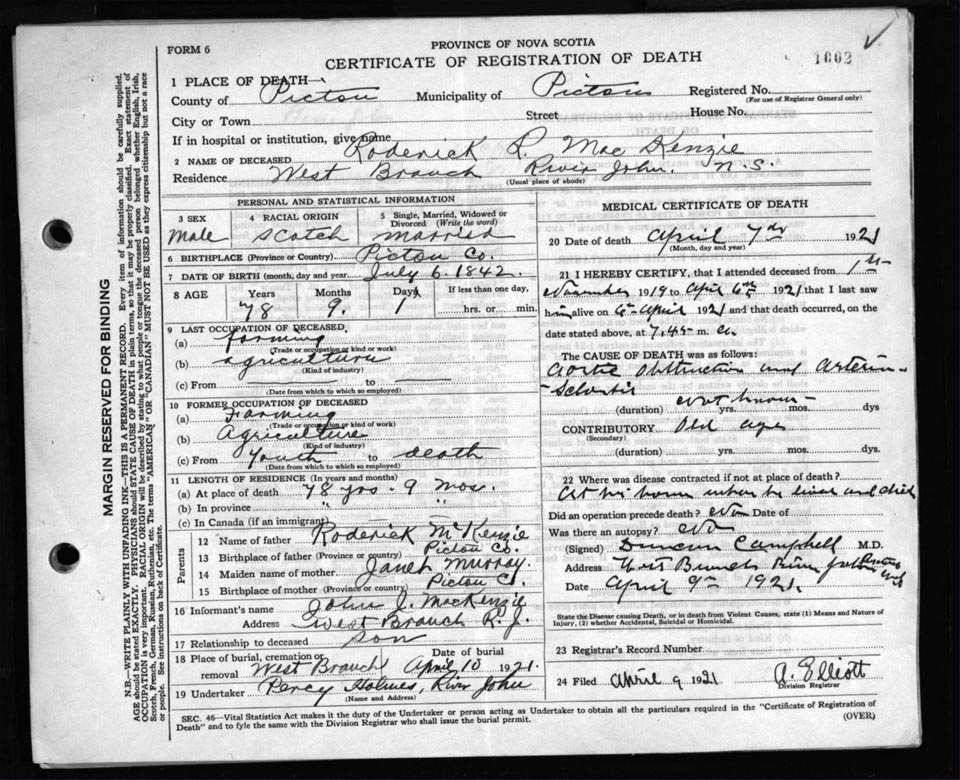 FORM 6
PROVINCE OF NOVA SCOTIA
CERTIFICATE OF REGISTRATION OF DEATH
1002
1 PLACE OF DEATH—
County of Pictou Municipality of Pictou Registered No.
(For use of Registrar General only)
City or Town Street House No.
If in hospital or institution, give name
2 NAME OF DECEASED Roderick R. MacKenzie
Residence West Branch River John. N.S.
(Usual place of abode)
PERSONAL AND STATISTICAL INFORMATION
3 SEX 4 RACIAL ORIGIN 5 Single, Married, Widowed or Divorced (Write the word)
Male Scotch Married
6 BIRTHPLACE (Province or Country) Pictou Co.
7 DATE OF BIRTH (month, day and year) July 6. 1842.
8 AGE Years Months Days If less than one day,
78 9. 1 hrs. or min.
9 LAST OCCUPATION OF DECEASED.
(a) farming
(Trade or occupation or kind or work)
(b) agriculture
(Kind of industry)
(c) From to
(Date from which to which so employed)
10 FORMER OCCUPATION OF DECEASED
(a) Farming
(Trade or occupation or kind of work)
(b) Agriculture
(Kind of industry)
(c) From Youth to death
(Date from which to which so employed)
11 LENGTH OF RESIDENCE (In years and months)
(a) At place of death 78 yrs - 9 mos.
(b) In province " "
(c) In Canada (if an immigrant)
Parents
12 Name of father Roderick McKenzie
13 Birthplace of father (Province or country) Pictou Co.
14 Maiden name of mother Janet Murray.
15 Birthplace of mother (Province or country) Pictou Co.
16 Informant's name John J. MacKenzie
Address West Branch R. J.
17 Relationship to deceased son
18 Place of burial, cremation or removal West Branch Date of burial April 10 1921.
19 Undertaker Percy Holmes, River John
(Name and Address)
MEDICAL CERTIFICATE OF DEATH
20 Date of death April 7th 1921
(Month, day and year)
21 I HEREBY CERTIFY, that I attended deceased from 1st
November 1919 to April 6th 1921 that I last saw
him alive on 6 April 1921 and that death occurred, on the
date stated above, at 7.45 m. a.
The CAUSE OF DEATH was as follows:
Aortic obstruction and Arterio-
-Sclerosis
(duration) not known yrs. mos. dys
CONTRIBUTORY Old age
(Secondary)
(duration) yrs. mos. dys.
22 Where was disease contracted if not at place of death?
At his home where he lived and died
Did an operation precede death? No Date of
Was there an autopsy? No
(Signed) Duncan Campbell M.D.
Address River John
Date April 9th 1921.
State the Disease causing Death, or in death from Violent Causes, state (1) Means and Nature of
Injury, (2) whether Accidental, Suicidal or Homicidal.
23 Registrar's Record Number
24 Filed April 9 1921 A. Elliott
Division Registrar
SEC. 46—Vital Statistics Act makes it the duty of the Undertaker or person acting as Undertaker to obtain all the particulars required in the "Certificate of Registration of
Death" and to fyle the same with the Division Registrar who shall issue the burial permit.
(OVER)
MARGIN RESERVED FOR BINDING
N.B.—WRITE PLAINLY WITH UNFADING INK—THIS IS A PERMANENT RECORD. Every item of information should be carefully supplied.
AGE should be stated EXACTLY. PHYSICIANS should STATE CAUSE OF DEATH in plain terms, so that it may be properly classified. Exact statement of
OCCUPATION is very important. RACIAL ORIGIN will be described by stating to what people or tongue the deceased person belonged whether English, Irish,
Scotch, French, German, Russian, Ruthenian, etc. The terms "AMERICAN" OR "CANADIAN" MUST NOT BE USED as they express citizenship but not a race
or people. See instructions on back of Certificate.